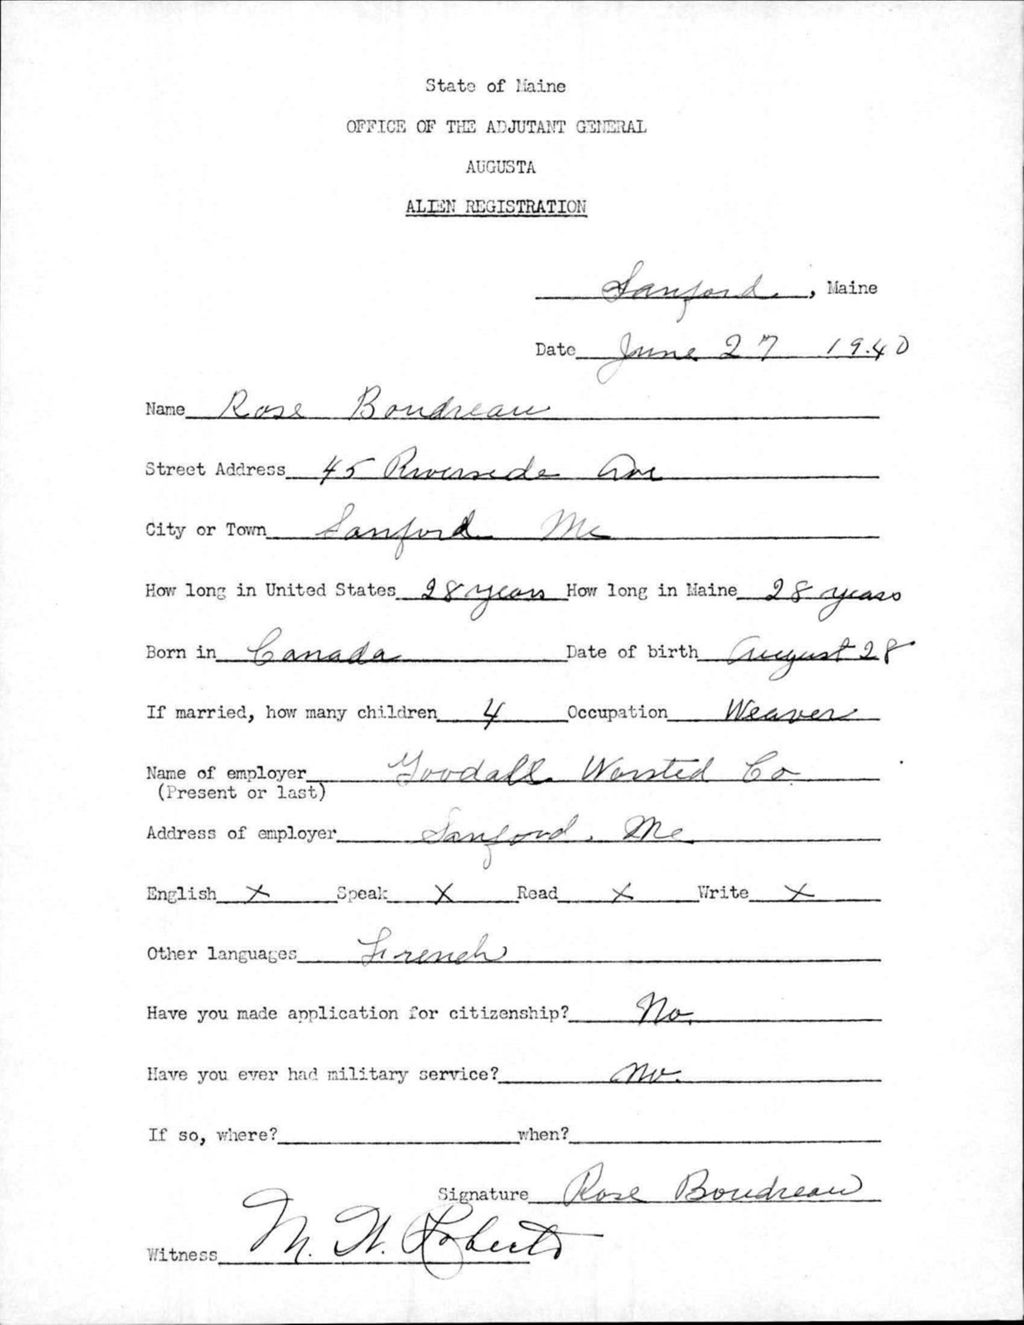 State of Maine
OFFICE OF THE ADJUTANT GENERAL
AUGUSTA
ALIEN REGISTRATION
Sanford, Maine
Date June 27 1940
Name Rose Boudreau
Street Address 45 Riverside Ave
City or Town Sanford Me
How long in United States 28 years How long in Maine 28 years
Born in Canada Date of birth August 28
If married, how many children 4 Occupation Weaver
Name of employer Goodall Worsted Co
(Present or last)
Address of employer Sanford, Me
English X Speak X Read X Write X
Other languages French
Have you made application for citizenship? No.
Have you ever had military service? No.
If so, where? when?
Signature Rose Boudreau
Witness M. W. Roberts